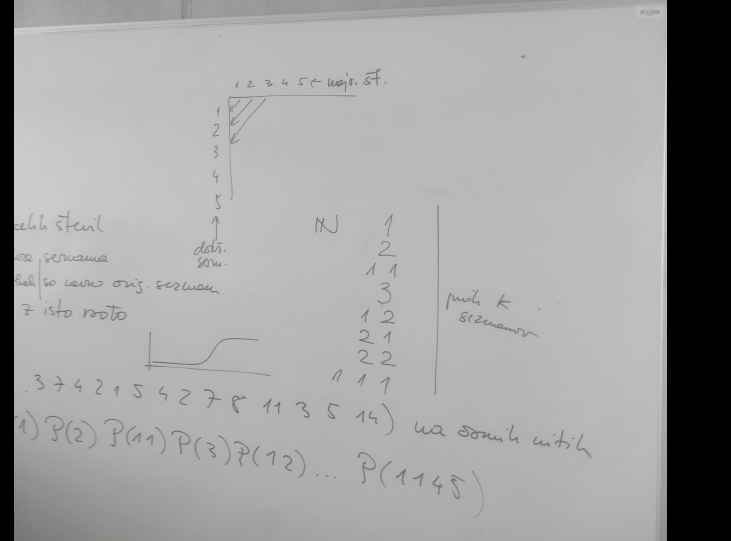 1 2 3 4 5 ← najv. št.
1
2
3
4
5
↑
dolž.
sezn.
celih števil
seznama
so ravno orig. seznam
z isto vsoto
N 1
2
1 1
3
1 2
2 1
2 2
1 1 1
prvih K
seznamov
3 7 4 2 1 5 4 2 7 8 11 3 5 14) na osmih nitih
(1) P(2) P(11) P(3) P(12) ... P(1145)